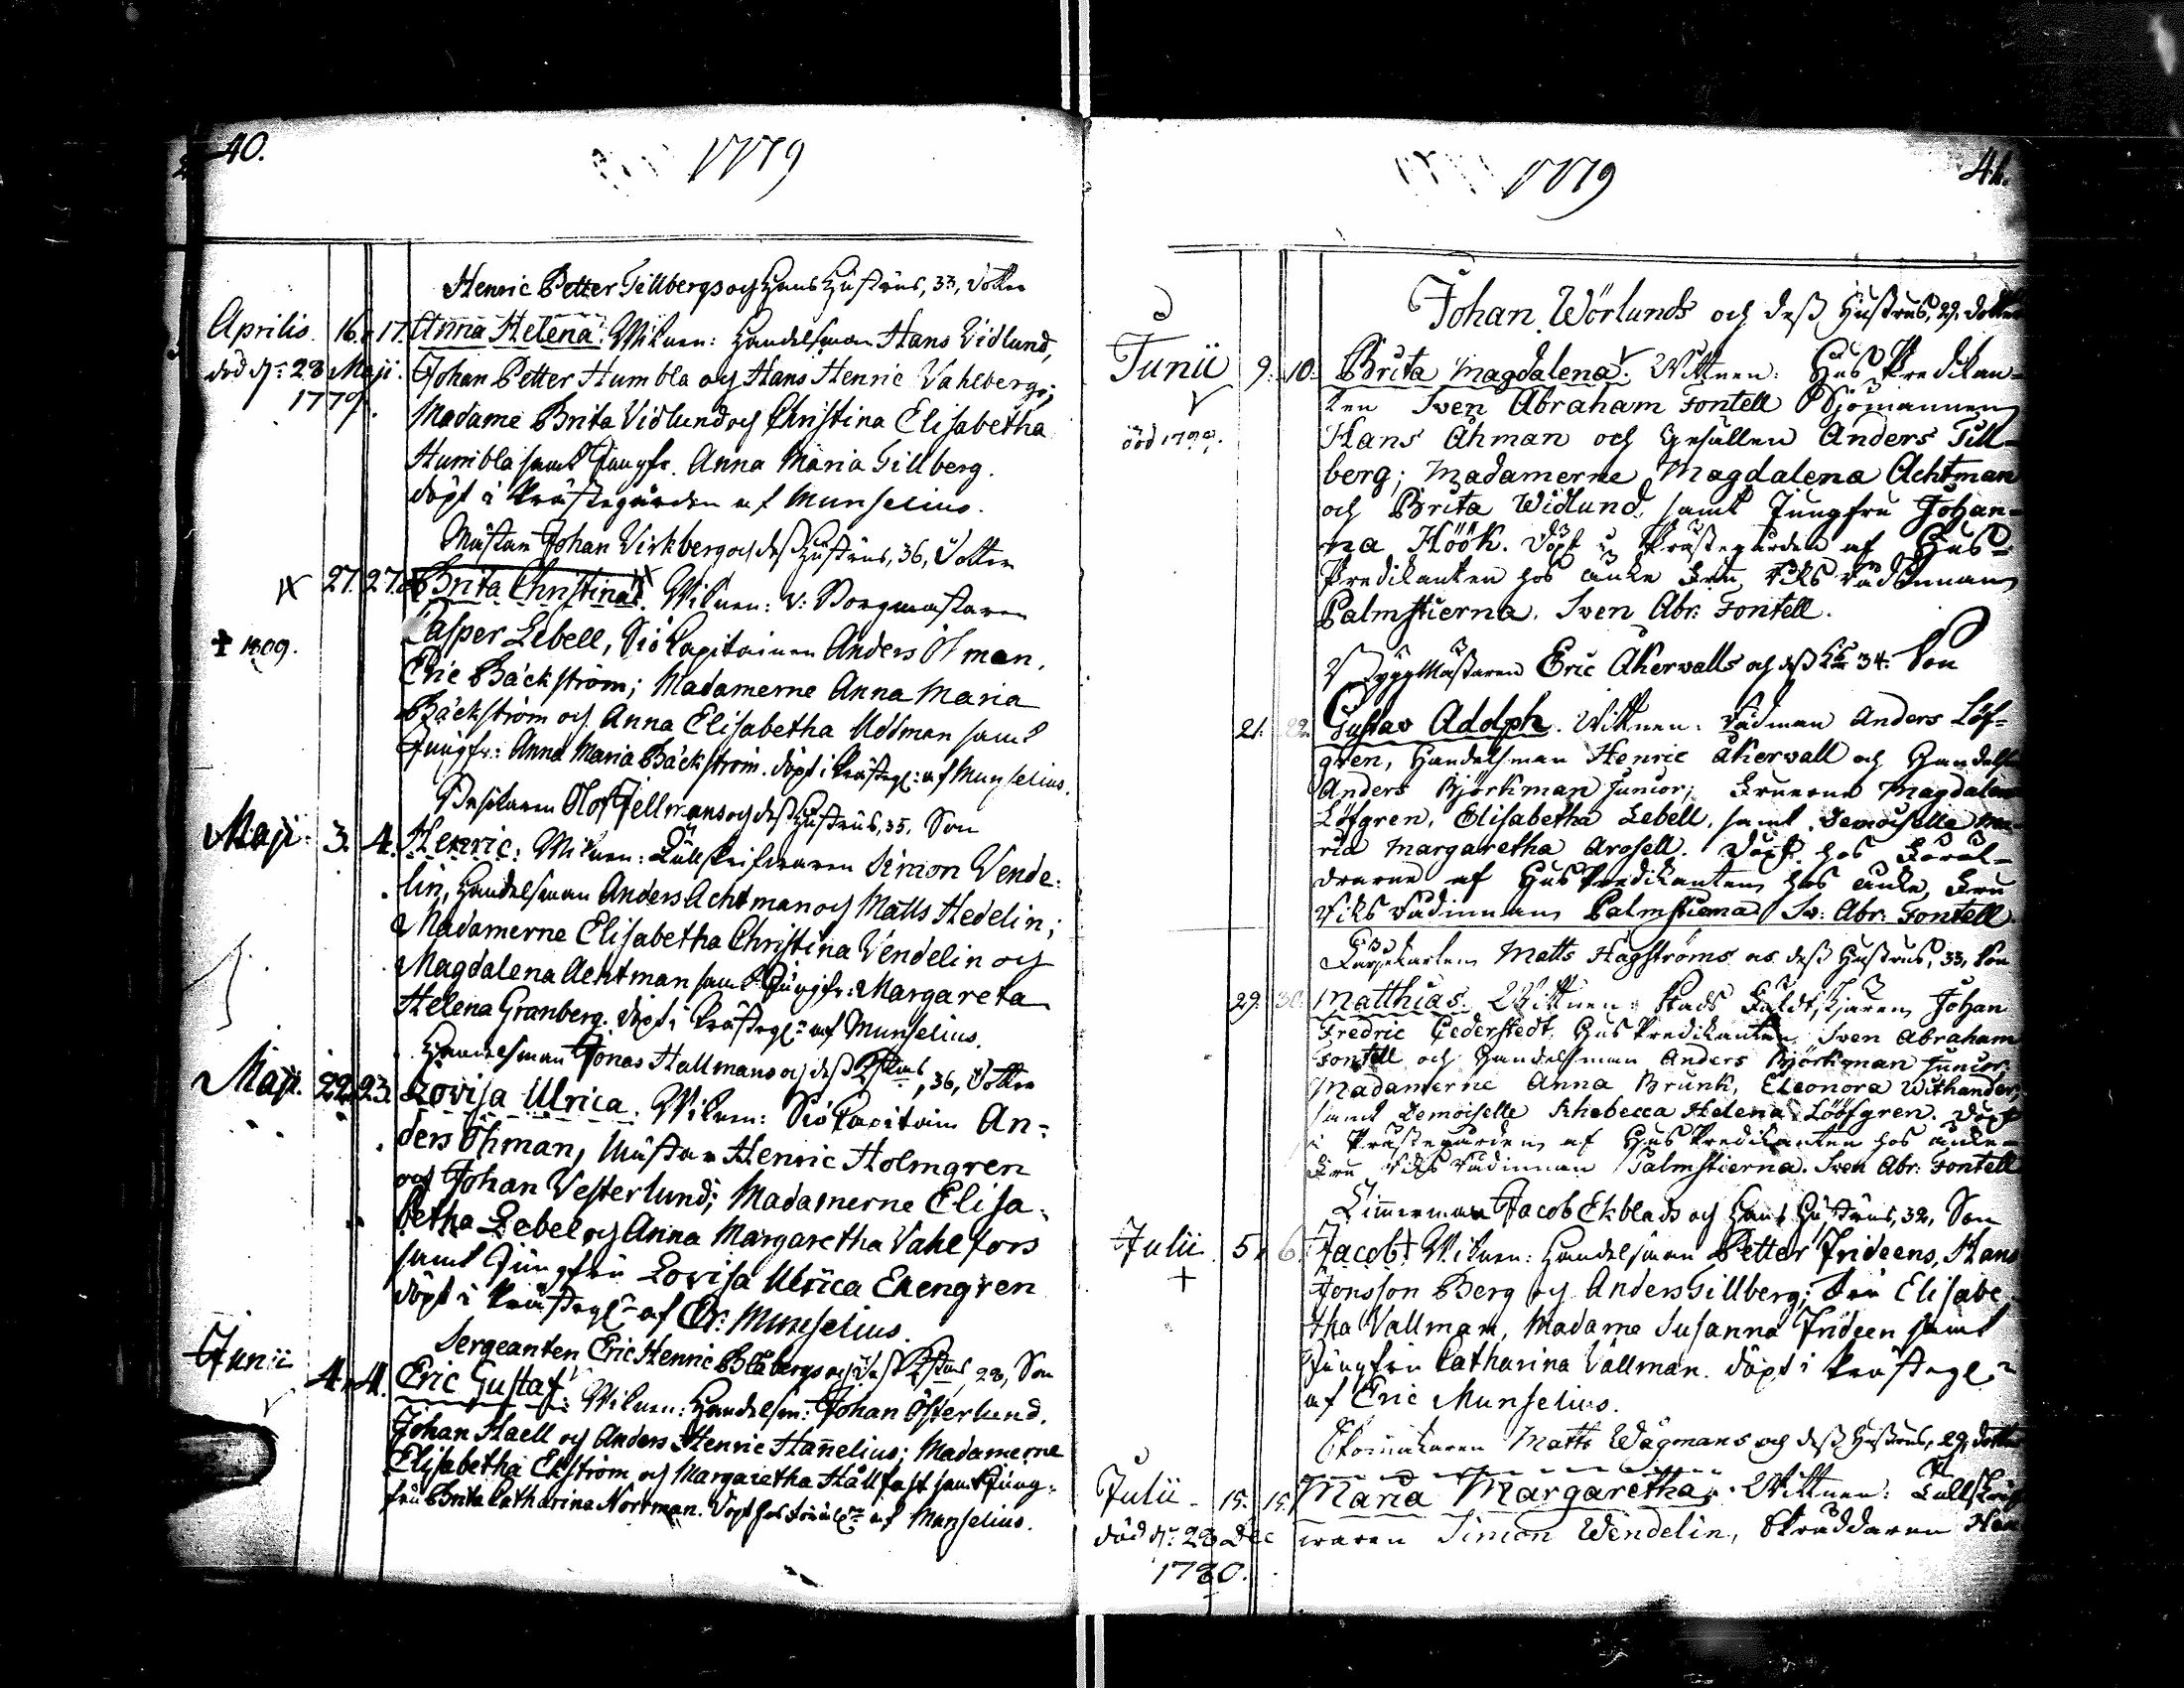 40.
1779
Henric Petter Gillbergs och Hans Hustrus, 33, Dotter
Aprilis. 16. 17. Anna Helena. Witnen: Handelsman Hans Vidlund,
död d: 28 Maji. Johan Petter Humbla och Hans Henric Vahlberg;
1779. Madame Brita Vidlund och Christina Elisabetha
Humbla samt Jungfr. Anna Maria Gillberg.
döpt i Prästegården af Munselius.
Mästar Johan Virkberg och dess Hustrus, 36, Dotter
27. 27. Brita Christina. Witnen: v: Borgmästaren
Casper Lebell, Siö Capitainen Anders Öhman,
† 1809.
Eric Bäckström; Madamerne Anna Maria
Bäckström och Anna Elisabetha Nordman samt
Jungfr: Anna Maria Bäckström. döpt i Prästeg: af Munselius.
Besökaren Olof Fellmans och dess Hustrus, 35, Son
Maji. 3. 4. Henric. Witnen: Tullskrifvaren Simon Vende-
lin, Handelsman Anders Achtman och Matts Hedelin;
Madamerne Elisabetha Christina Vendelin och
Magdalena Achtman samt Jungfr: Margareta
Helena Granberg. döpt i Prästeg: af Munselius.
Handelsman Jonas Hallmans och dess Hustrus, 36, Dotter
Maji. 22. 23. Lovisa Ulrica. Witnen: Siö Capitain An-
ders Öhman, Mästar Henric Holmgren
och Johan Vesterlund; Madamerne Elisa-
betha Lebel och Anna Margaretha Vahlfors
samt Jungfru Lovisa Ulrica Ekengren
döpt i Prästeg: af Er: Munselius.
Sergeanten Eric Henric Blåbergs och dess Hustrus, 28, Son
Junii 4. 4. Eric Gustaf. Witnen: Handelsm: Johan Österlund,
Johan Haell och Anders Henric Hanelius; Madamerne
Elisabetha Ekström och Margaretha Hållfast samt Jung-
fru Brita Catharina Norrman. Döpt hos Föräld:ne af Munselius.
1779
41.
Johan Wörlunds och dess Hustrus, 29, dotter
Junii 9. 10. Brita Magdalena. Wittnen: Hus Predikan-
ten Sven Abraham Fontell Sjömannen
död
Hans Åhman och Gesällen Anders Till-
berg; Madamerne Magdalena Achtman
och Brita Widlund, samt Jungfru Johan-
na Höök. Döpt i Prästegården af Hus-
Predikanten hos Enke Fru Riks Rådinnan
Palmstierna. Sven Abr. Fontell.
Byggmästaren Eric Åkervalls och dess H:u 34. Son
21. 22. Gustav Adolph. Wittnen: Rådman Anders Löf-
gren, Handelsman Henric Åkervall och Handelsm
Anders Björkman Junior; Fruarne Magdalena
Löfgren, Elisabetha Lebell, samt Demoiselle Ma-
ria Margaretha Arosell. Döpt hos Föräl-
drarne af HusPredikanten hos Enke Fru
RiksRådinnan Palmstierna Sv: Abr: Fontell
Matts Hagströms och dess Hustrus, 33, Son
29. 30. Matthias. Wittnen: Stads Johan
Fredric Cederstedt, HusPredikanten Sven Abraham
Fontell och Handelsman Anders Björkman Junior;
Madamerne Anna Brunk, Eleonora Withander,
samt Demoiselle Rhebecca Helena Lööfgren. Döpt
i Prästegården af HusPredikanten hos Enke-
Fru RiksRådinnan Palmstierna. Sven Abr: Fontell
Timmerman Jacob Ekblads och Hans Hustrus, 32, Son
Julii. 5. 6. Jacob. Witnen: Handelsman Petter Frideens, Hans
Jonsson Berg och Anders Gillberg; Fru Elisabe-
tha Vallman, Madame Susanna Frideen samt
Jungfru Catharina Vallman. döpt i Prästeg:
af Eric Munselius.
Skomakaren Matts Wågmans och dess Hustrus, 29, dotter
Julii. 15. 15. Maria Margaretha. Wittnen: Tullskrif-
död d: 28 Dec waren Simon Wendelin, Skräddaren Hen
1780.